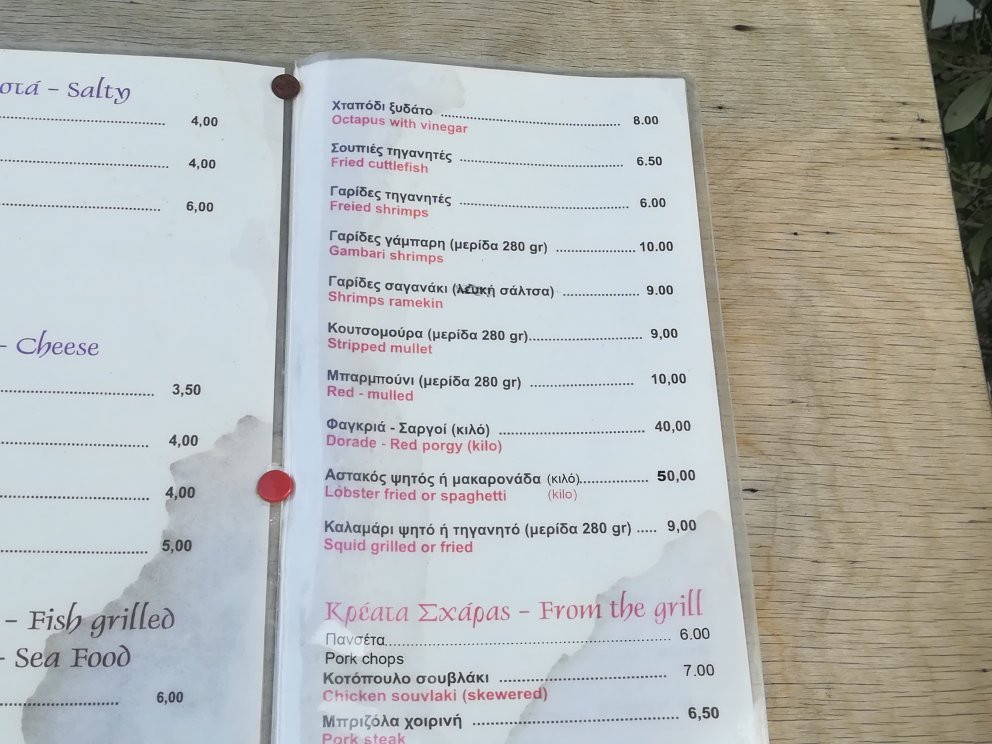 στά - Salty
4,00
4,00
6,00
- Cheese
3,50
4,00
4,00
5,00
- Fish grilled
- Sea Food
6,00
Χταπόδι ξυδάτο ........ 8.00
Octapus with vinegar
Σουπιές τηγανητές ........ 6.50
Fried cuttlefish
Γαρίδες τηγανητές ........ 6.00
Freied shrimps
Γαρίδες γάμπαρη (μερίδα 280 gr) ........ 10.00
Gambari shrimps
Γαρίδες σαγανάκι (λευκή σάλτσα) ........ 9.00
Shrimps ramekin
Κουτσομούρα (μερίδα 280 gr)........ 9,00
Stripped mullet
Μπαρμπούνι (μερίδα 280 gr) ........ 10,00
Red - mulled
Φαγκριά - Σαργοί (κιλό) ........ 40,00
Dorade - Red porgy (kilo)
Αστακός ψητός ή μακαρονάδα (κιλό)........ 50,00
Lobster fried or spaghetti (kilo)
Καλαμάρι ψητό ή τηγανητό (μερίδα 280 gr) ..... 9,00
Squid grilled or fried
Κρέατα Σχάρας - From the grill
Πανσέτα........ 6.00
Pork chops
Κοτόπουλο σουβλάκι ........ 7.00
Chicken souvlaki (skewered)
Μπριζόλα χοιρινή ........ 6,50
Pork steak